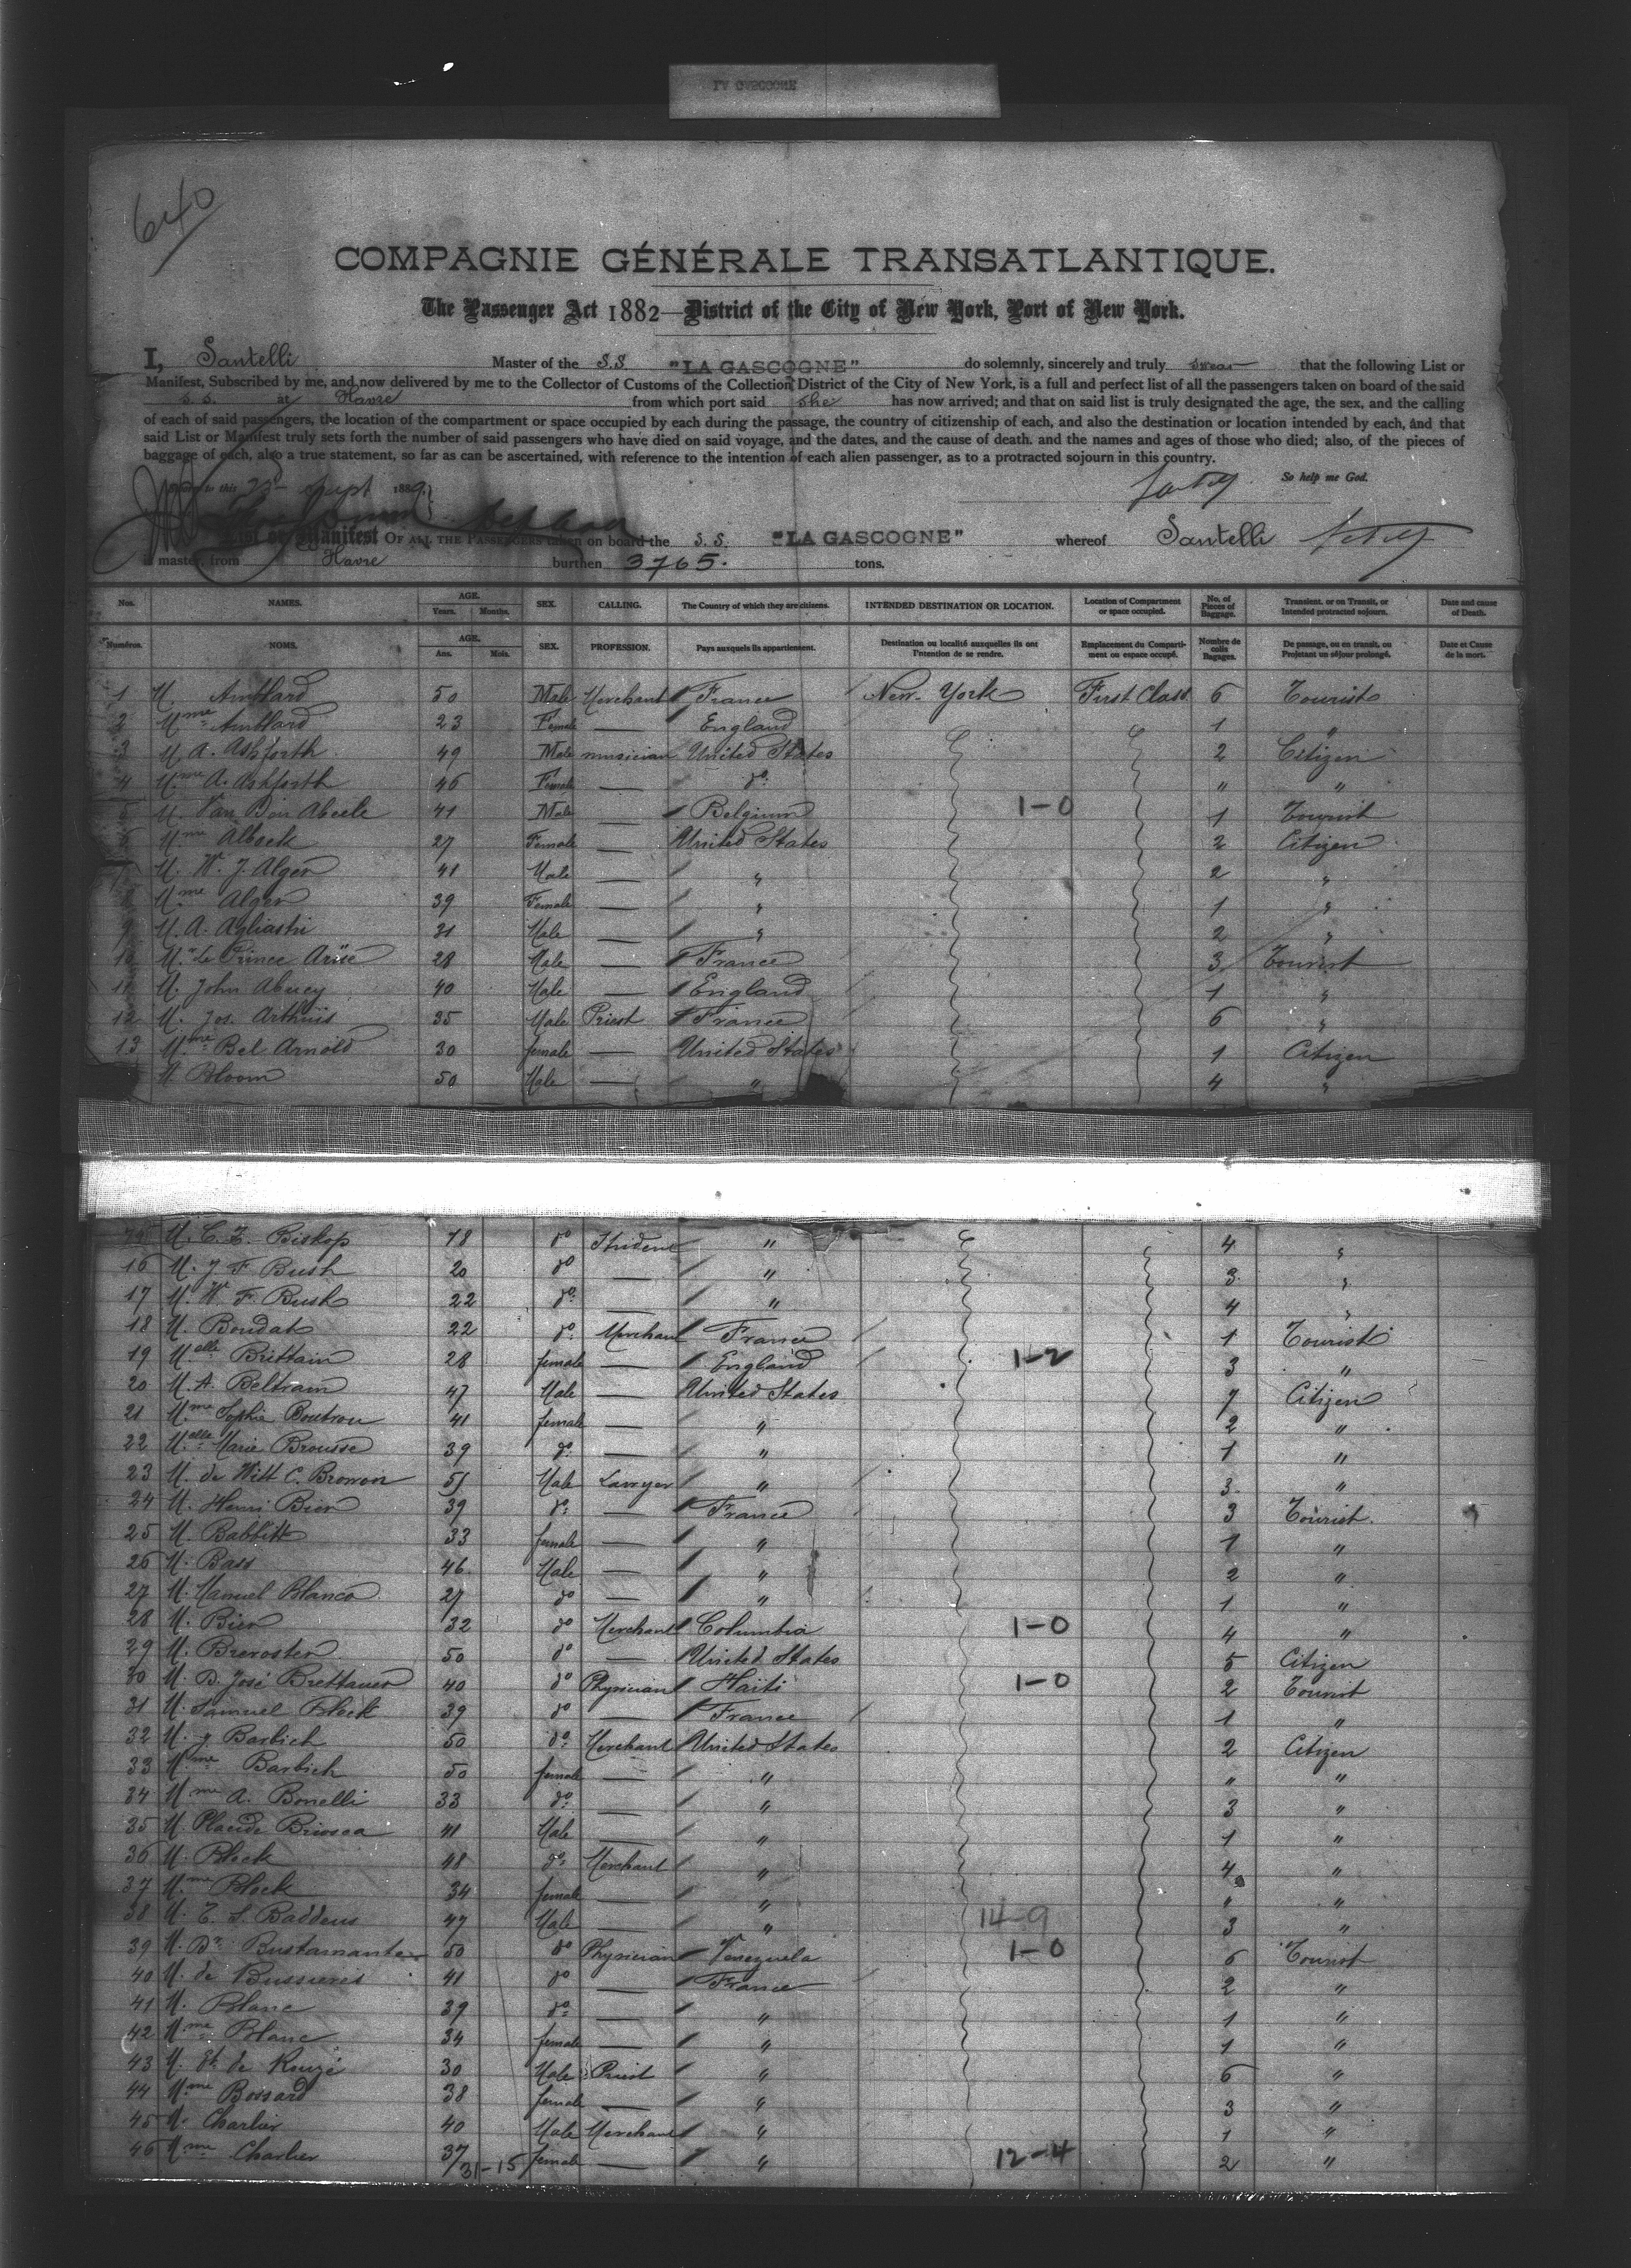 640
COMPAGNIE GÉNÉRALE TRANSATLANTIQUE.
The Passenger Act 1882—District of the City of New York, Port of New York.
I, Santelli Master of the S.S "LA GASCOGNE" do solemnly, sincerely and truly swear that the following List or
Manifest, Subscribed by me, and now delivered by me to the Collector of Customs of the Collection District of the City of New York, is a full and perfect list of all the passengers taken on board of the said
S. S. at Havre from which port said she has now arrived; and that on said list is truly designated the age, the sex, and the calling
of each of said passengers, the location of the compartment or space occupied by each during the passage, the country of citizenship of each, and also the destination or location intended by each, and that
said List or Manifest truly sets forth the number of said passengers who have died on said voyage, and the dates, and the cause of death. and the names and ages of those who died; also, of the pieces of
baggage of each, also a true statement, so far as can be ascertained, with reference to the intention of each alien passenger, as to a protracted sojourn in this country.
to this Sept 1889 So help me God.
List or Manifest OF ALL THE PASSENGERS taken on board the S. S. "LA GASCOGNE" whereof Santelli
master, from Havre burthen 3765. tons.
Nos. NAMES. AGE. Years. Months. SEX. CALLING. The Country of which they are citizens. INTENDED DESTINATION OR LOCATION. Location of Compartment or space occupied. No. of Pieces of Baggage. Transient. or on Transit, or Intended protracted sojourn. Date and cause of Death.
Numéros. NOMS. AGE. Ans. Mois. SEX. PROFESSION. Pays auxquels ils appartiennent. Destination ou localité auxquelles ils ont l'intention de se rendre. Emplacement du Compartiment ou espace occupé. Nombre de colis Bagages. De passage, ou en transit, ou Projetant un séjour prolongé. Date et Cause de la mort.
1 M. 50 Male Merchant France New-York First Class 6 Tourist
2 Mme 23 Female — England 1 "
3 M. A. Ashforth 49 Male musician United States 2 Citizen
4 Mme A. Ashforth 46 Female — do " "
5 M. Van Den Abeele 41 Male — Belgium 1-0 1 Tourist
6 Mme Albeck 27 Female — United States 2 Citizen
7 M. W. J. Alger 41 Male — " 2 "
8 Mme Alger 39 Female — " 1 "
9 M. A. Agliastri 31 Male — " 2 "
10 Mr Le Prince 28 Male — France 3 Tourist
11 M. John 40 Male — England 1 "
12 M. Jos. Arthuis 35 Male Priest France 6 "
13 Mme Bel Arnold 30 female — United States 1 Citizen
M. Bloom 50 Male — " 4 "
M. C. Z. Bishop 18 do Student " 4 "
16 M. J F Bush 20 do — " 3 "
17 M. W. F. Bush 22 do — " 4 "
18 M. Boudat 22 do Merchant France 1 Tourist
19 Melle Brittain 28 female — England 1-2 3 "
20 M. A. Beltram 47 Male — United States 7 Citizen
21 Mme Sophie Boutrou 41 female — " 2 "
22 Melle Marie Brousse 39 do — " 1 "
23 M. de Witt C. 51 Male Lawyer " 3 "
24 M. Henri Bier 39 do — France 3 Tourist
25 M. Babbitt 33 female — " 1 "
26 M. Bass 46 Male — " 2 "
27 M. Manuel Blanco 27 do — " 1 "
28 M. Bier 32 do Merchant Columbia 1-0 4 "
29 M. Brevoster 50 do — United States 5 Citizen
30 M. D. José Brettauer 40 do Physician Haiti 1-0 2 Tourist
31 M. Samuel Block 39 do — France 1 "
32 M. J. Barbich 50 do Merchant United States 2 Citizen
33 Mme Barbich 50 female — " " "
34 Mme A. Bonelli 33 do — " 3 "
35 M. Placide Briosca 41 Male — " 1 "
36 M. Block 48 do Merchant " 4 "
37 Mme Block 34 female — " " "
38 M. E. S. Baddeus 47 Male — " 14-9 3 "
39 M. Dr Bustamante 50 do Physician Venezuela 1-0 6 Tourist
40 M. de Bussieres 41 do — France 2 "
41 M. Blanc 39 do — " 1 "
42 Mme Blanc 34 female — " 1 "
43 M. de 30 Male Priest " 6 "
44 Mme Bossard 38 female — " 3 "
45 M. Charlier 40 Male Merchant " 1 "
46 Mme Charlier 37 female — " 12-4 2 "
31-15